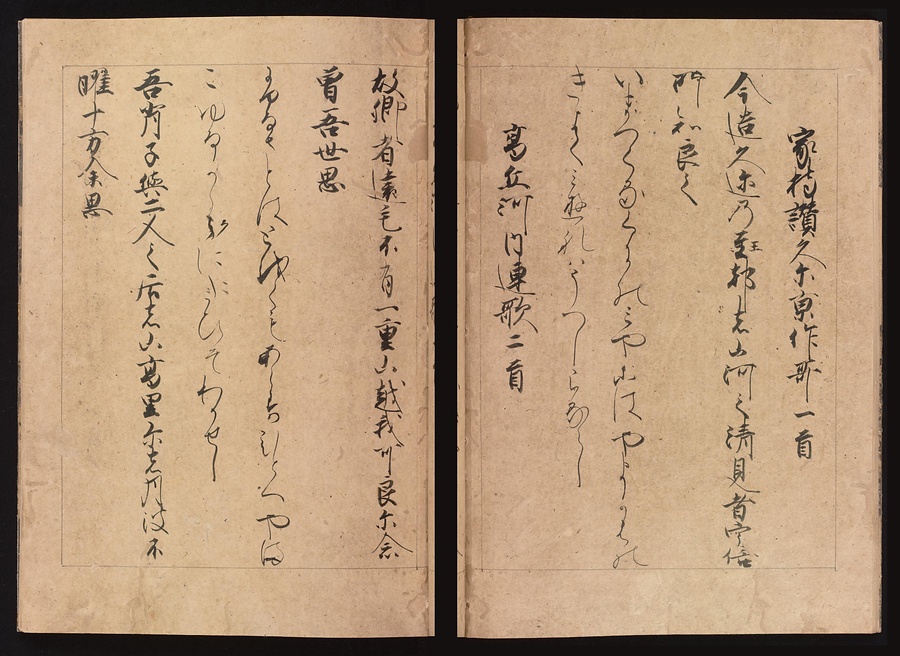 家持讃久尓京作哥一首
今造久迩乃王都者山河之清見者宇倍
所知良之
いまつくるくにのみやこはやまかはの
きよくみゆれはうへしらるらし
高丘河内連歌二首
故郷者遠毛不有一重山越我可良尓念
曽吾世思
ふるさとはとほくもあらすひとへやま
こゆるかからにおもひそわかせし
吾背子與二人之居者山高里尓者月波不
曜十方余思